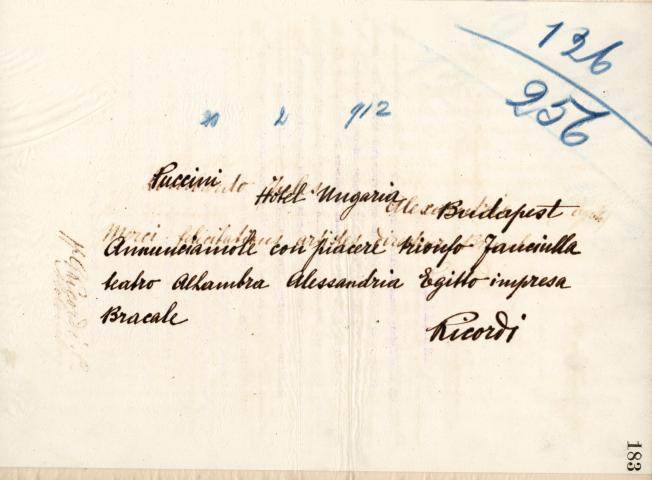 126
256
20 2 912
Puccini
Hôtel Ungaria
Budapest
Annunciamote con piacere trionfo Fanciulla
teatro Alhambra Alessandria Egitto impresa
Bracale
Ricordi
183